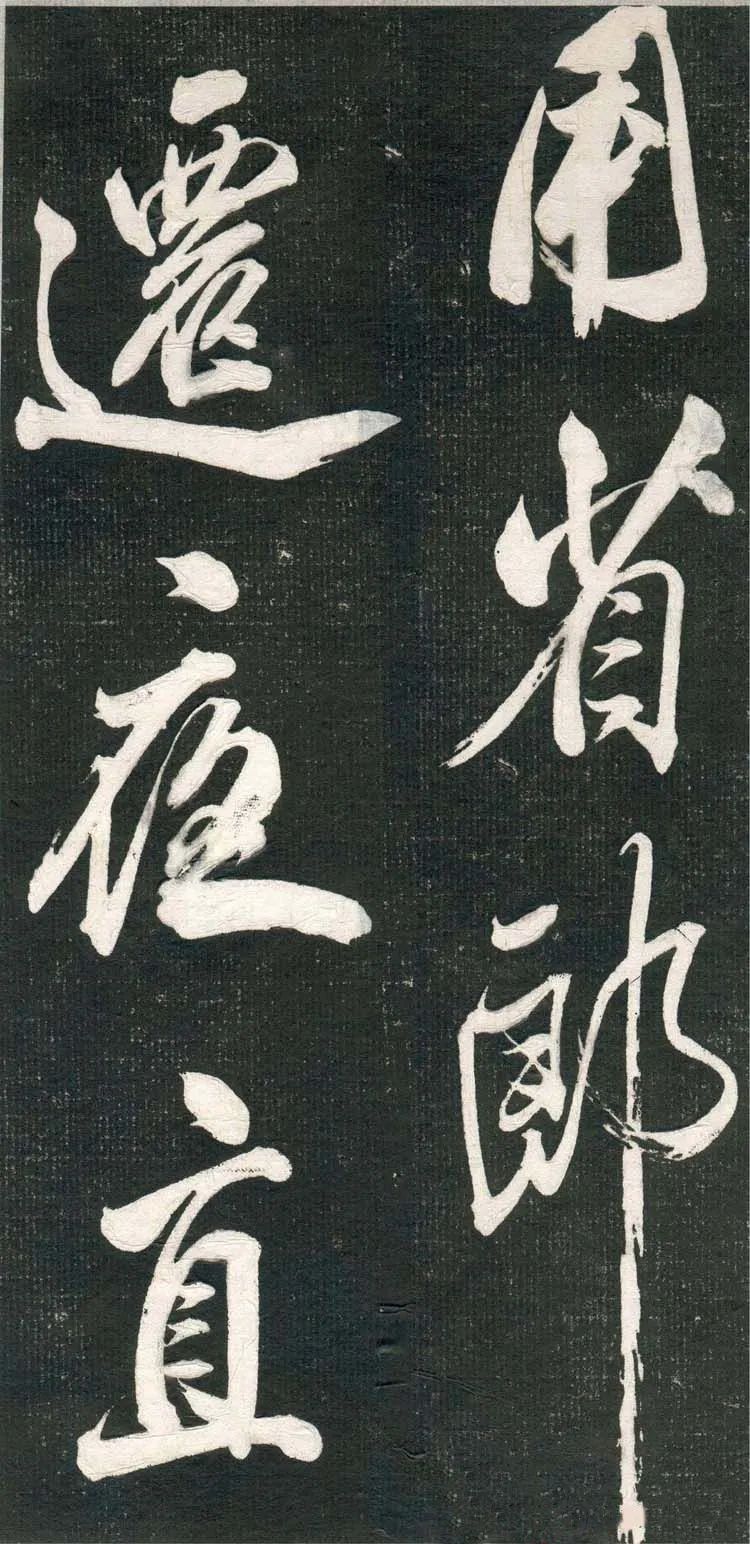 用省郎
還夜直